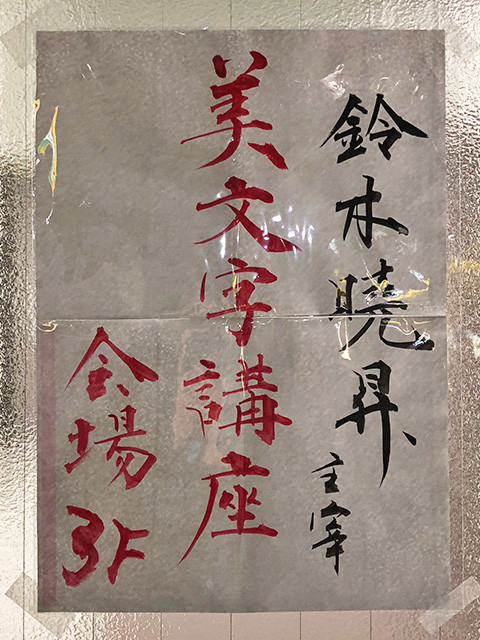 鈴木曉昇主宰
美文字講座
会場3F